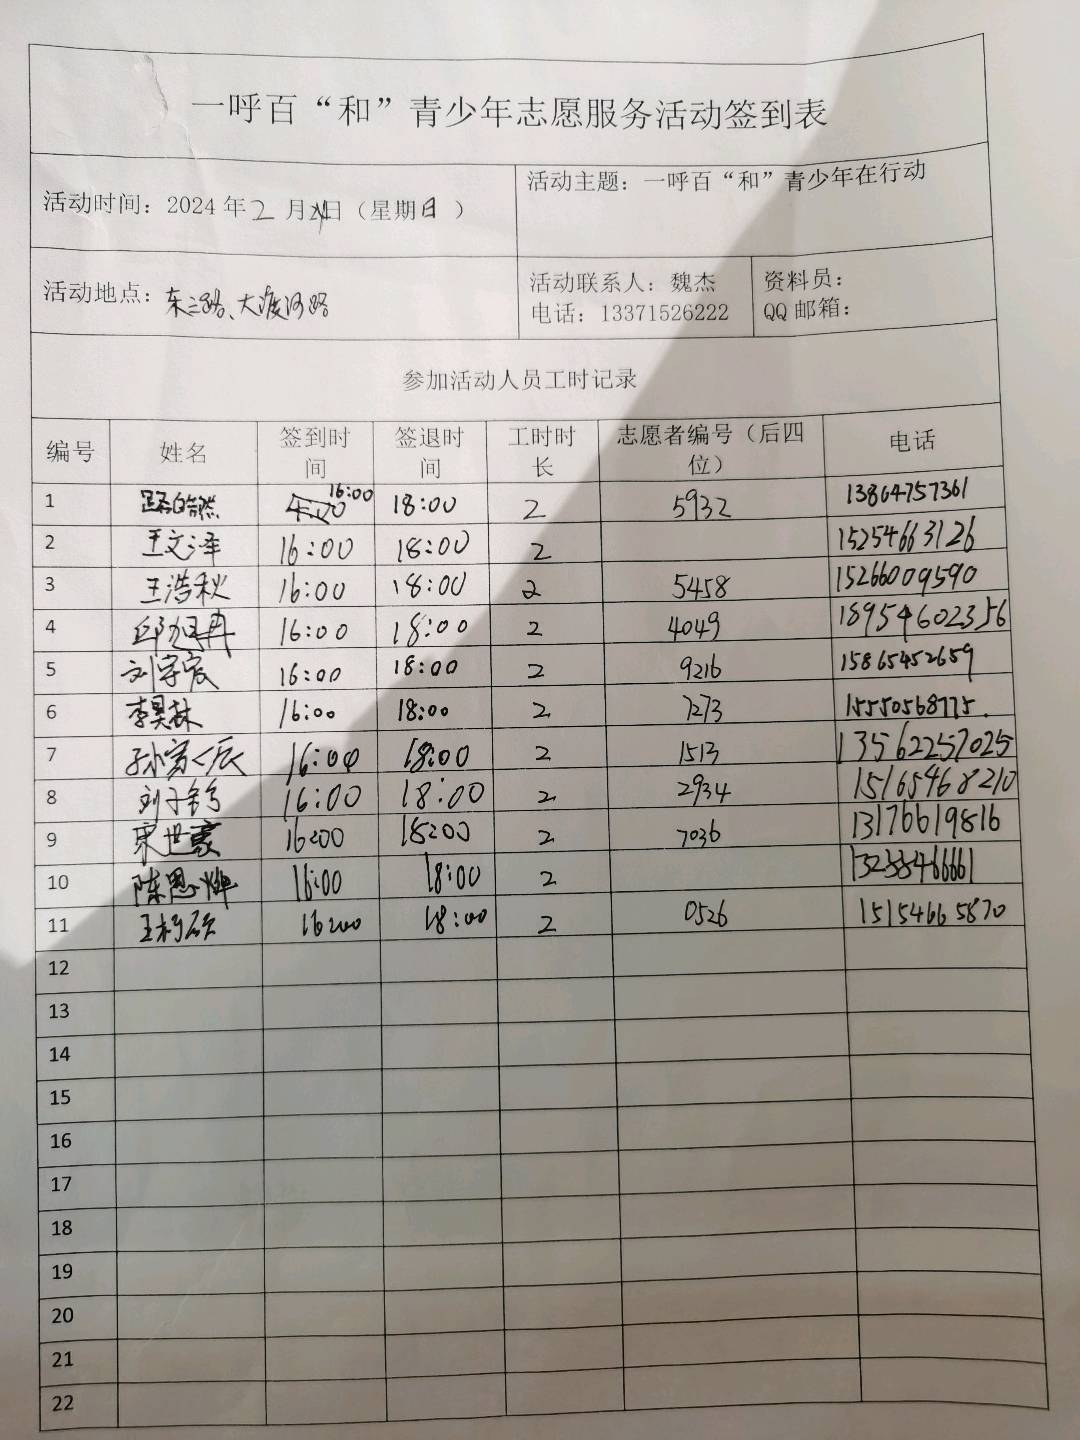 一呼百“和”青少年志愿服务活动签到表
活动时间：2024年2月 日（星期日）
活动主题：一呼百“和”青少年在行动
活动地点：东三路、大渡河路
活动联系人：魏杰
电话：13371526222
资料员：
QQ邮箱：
参加活动人员工时记录
编号 姓名 签到时间 签退时间 工时时长 志愿者编号（后四位） 电话
1 路皓然 16:00 18:00 2 5932 13864757361
2 王文泽 16:00 18:00 2 15254663126
3 王浩秋 16:00 18:00 2 5458 15266009590
4 邱旭冉 16:00 18:00 2 4049 18954602356
5 刘宇宸 16:00 18:00 2 9216 15865452659
6 李昊林 16:00 18:00 2 7273 15550568775.
7 孙寅辰 16:00 18:00 2 1513 13562257025
8 刘子 16:00 18:00 2 2934 15165468210
9 宋世豪 16:00 18:00 2 7036 13176619816
10 陈恩 16:00 18:00 2
11 王杨硕 16:00 18:00 2 0526 15154665870
12
13
14
15
16
17
18
19
20
21
22